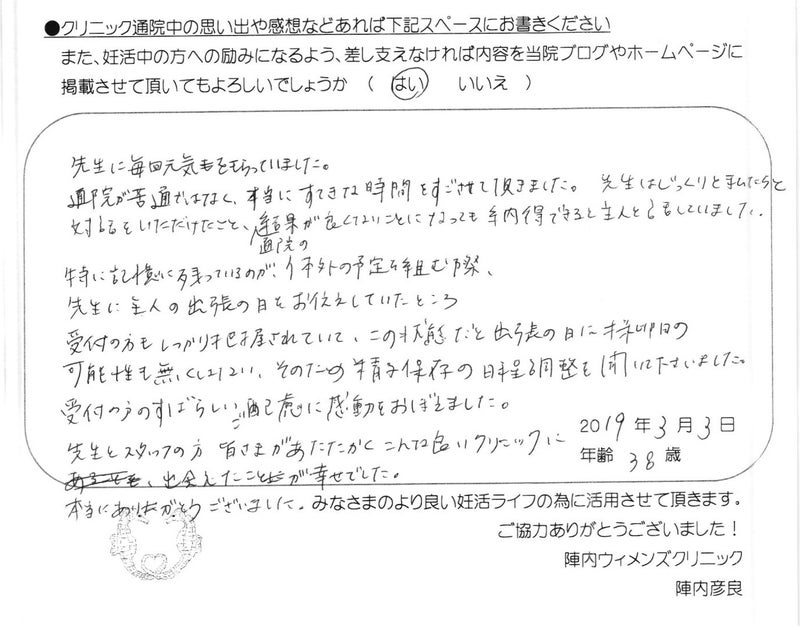 ●クリニック通院中の思い出や感想などあれば下記スペースにお書きください
また、妊活中の方への励みになるよう、差し支えなければ内容を当院ブログやホームページに
掲載させて頂いてもよろしいでしょうか ( はい いいえ )
先生に毎回元気をもらっていました。
通院が苦痛ではなく、本当にすてきな時間をすごさせて頂きました。 先生はじっくりと私たちと
対話をしていただけたこと、通院の結果が良くないことになっても納得できると主人と話していました。
特に記憶に残っているのが、体外の予定を組む際、
先生に主人の出張の日をお伝えしていたところ
受付の方もしっかり把握されていて、この状態だと出張の日に採卵日の
可能性も無くしもない、そのため精子保存の日程調整を聞いて下さいました。
受付の方のすばらしいご配慮に感動をおぼえました。
先生とスタッフの方 皆さまがあたたかくこんな良いクリニックに
出会えたことが幸せでした。
本当にありがとうございました。
2019年3月3日
年齢 38歳
みなさまのより良い妊活ライフの為に活用させて頂きます。
ご協力ありがとうございました！
陣内ウィメンズクリニック
陣内彦良